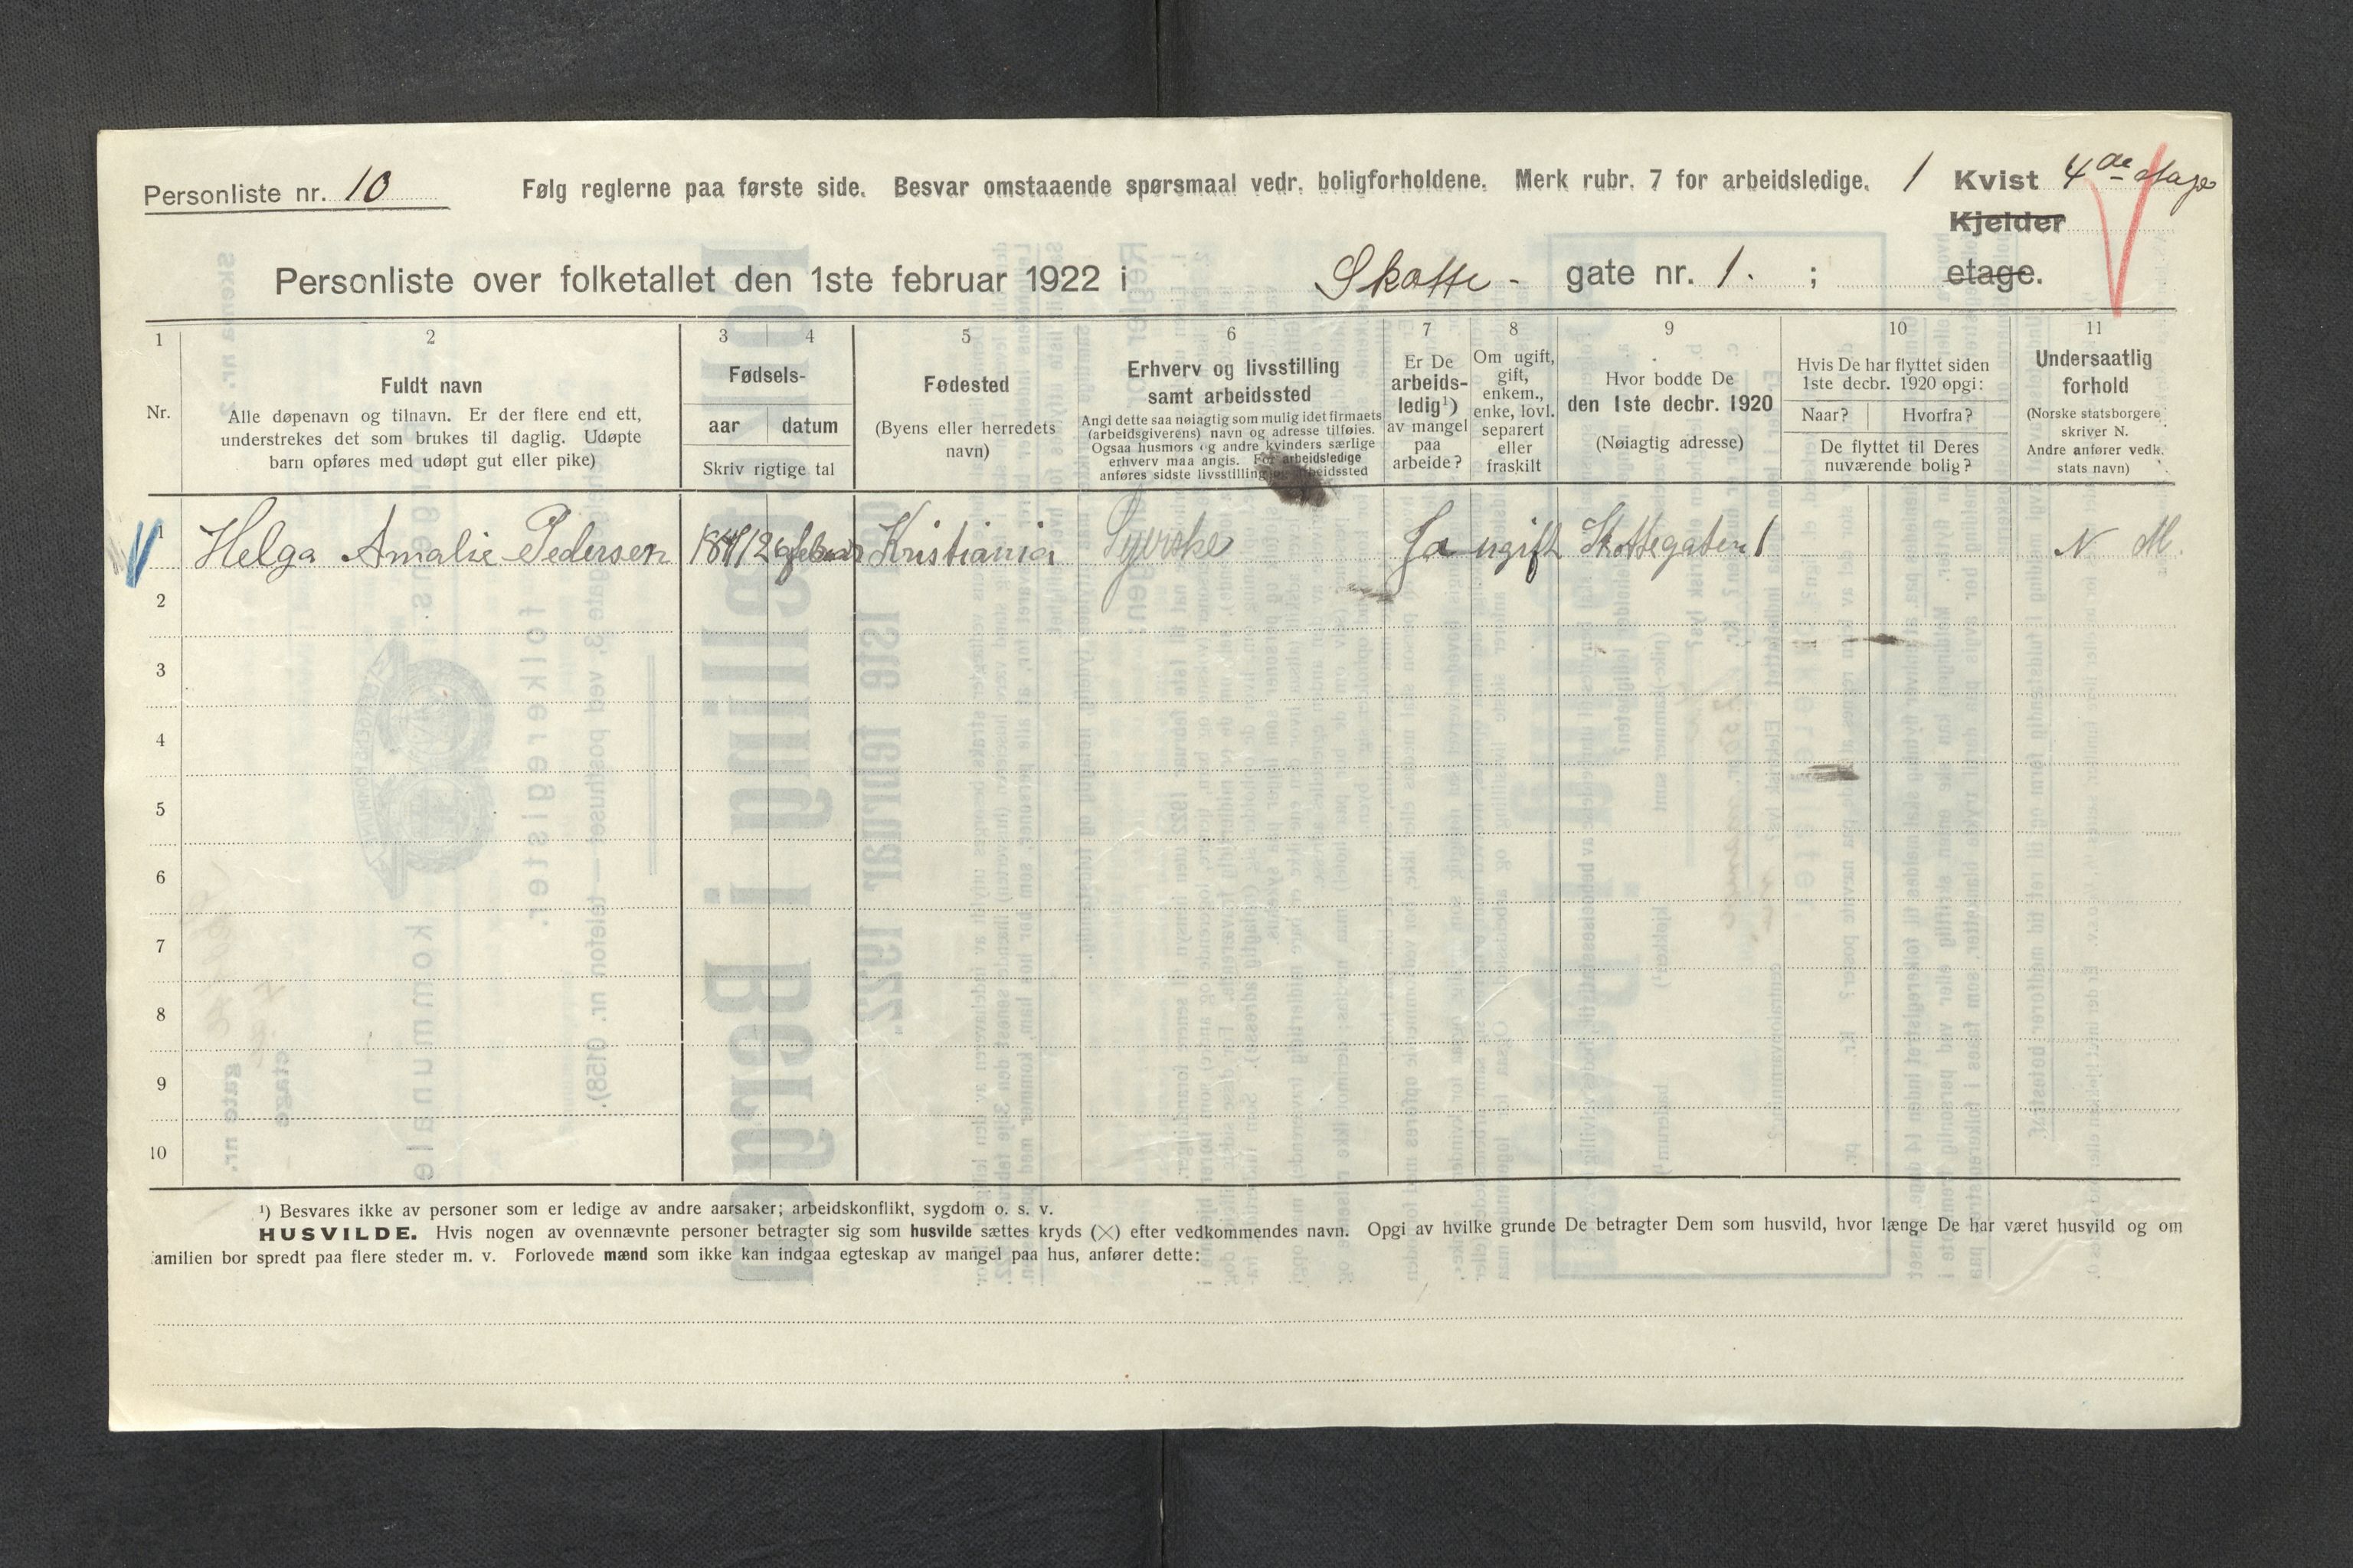 Personliste nr. 10
Følg reglerne paa første side. Besvar omstaaende spørsmaal vedr. boligforholdene. Merk rubr. 7 for arbeidsledige.
1 Kvist 4de etage
Kjelder
Personliste over folketallet den 1ste februar 1922 i Skotte- gate nr. 1. ; etage.
1
Nr.
2
Fuldt navn
Alle døpenavn og tilnavn. Er der flere end ett,
understrekes det som brukes til daglig. Udøpte
barn opføres med udøpt gut eller pike)
3 4
Fødsels-
aar datum
Skriv rigtige tal
5
Fødested
(Byens eller herredets
navn)
6
Erhverv og livsstilling
samt arbeidssted
Angi dette saa nøiagtig som mulig idet firmaets
(arbeidsgiverens) navn og adresse tilføies.
Ogsaa husmors og andre kvinders særlige
erhverv maa angis. For arbeidsledige
anføres sidste livsstilling arbeidssted
7
Er De
arbeids-
ledig¹)
av mangel
paa
arbeide?
8
Om ugift,
gift,
enkem.,
enke, lovl.
separert
eller
fraskilt
9
Hvor bodde De
den 1ste decbr. 1920
(Nøiagtig adresse)
10
Hvis De har flyttet siden
1ste decbr. 1920 opgi:
Naar? Hvorfra?
De flyttet til Deres
nuværende bolig?
11
Undersaatlig
forhold
(Norske statsborgere
skriver N.
Andre anfører vedk.
stats navn)
1 Helga Amalie Pedersen Kristiania Syerske Ja ugift Skottegaten 1 N M.
2
3
4
5
6
7
8
9
10
¹) Besvares ikke av personer som er ledige av andre aarsaker; arbeidskonflikt, sygdom o. s. v.
HUSVILDE. Hvis nogen av ovennævnte personer betragter sig som husvilde sættes kryds (×) efter vedkommendes navn. Opgi av hvilke grunde De betragter Dem som husvild, hvor længe De har været husvild og om
familien bor spredt paa flere steder m. v. Forlovede mænd som ikke kan indgaa egteskap av mangel paa hus, anfører dette: